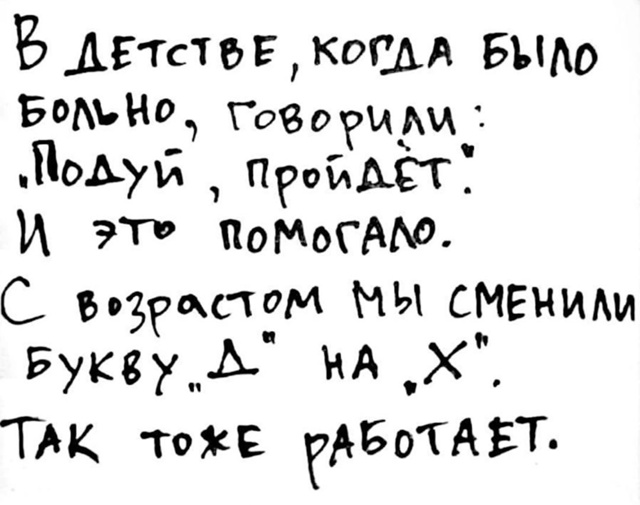 В ДЕТСТВЕ, КОГДА БЫЛО
БОЛЬНО, ГОВОРИЛИ:
„ПОДУЙ, ПРОЙДЁТ".
И ЭТО ПОМОГАЛО.
С ВОЗРАСТОМ МЫ СМЕНИЛИ
БУКВУ „Д" НА „Х".
ТАК ТОЖЕ РАБОТАЕТ.